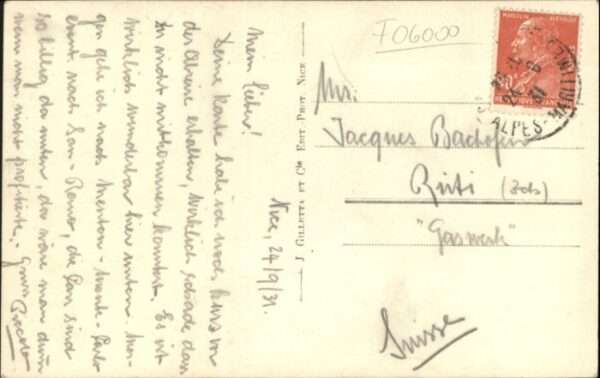 Nice, 24/9/31.
Mein Lieber!
Deine Karte habe ich noch kurz vor
der Abreise erhalten, wirklich schade dass
Du nicht mitkommen konntest. Es ist
wirklich wunderbar hier unten. Mor-
gen gehe ich nach Menton - Monte-Carlo
event. nach San-Remo, die Cars sind
so billig da unten, da wäre man dumm
wenn man nicht profitierte. - Gruss
Piccolo
J. GILETTA ET Cie EDIT. PHOT. NICE
F06000
ALPES-MARITIMES
Mr.
Jacques Bachofen
Rüti (Zch)
"Gaswerk"
Suisse